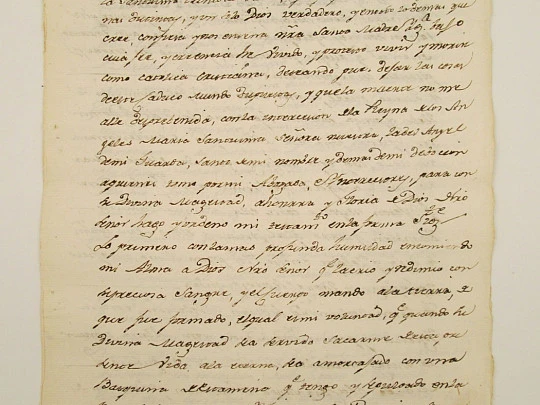 nas distintas, y un solo Dios verdadero, y en todo lo demas que
cree, confiesa y nos enseña nrã Santa Madre Yglª bajo
cuia fee, y creencia he vivido, y protexto vivir y morir
como catolica cristiana, deseando pues dejar las cosas
de este caduco mundo dispuestas, y que la muerte no me
alle desprebenida, con la interzecion de la Reyna de los An
geles Maria Santisima Señora nuestra, la del Angel
de mi Guarda, Santo de mi nombre y demas de mi debocion
a quienes tomo por mi Abogada, e Yntercesores, para con
su Divina Magestad, a honrra y Gloria de Dios Nrõ
Señor hago y ordeno mi testamto en la forma Sigte
Lo primero con la mas profunda humildad encomiendo
mi Alma a Dios Nrõ Señor qe la crio y redimio con
su preciosa Sangre, y el cuerpo mando a la tierra, de
que fue formado, el qual es mi voluntad, qe quando su
Divina Magestad sea servido sacarme de esta pre
sente Vida, a la eterna, sea amortajado con una
Basquiña de Estameña qe tengo y sepultado en la